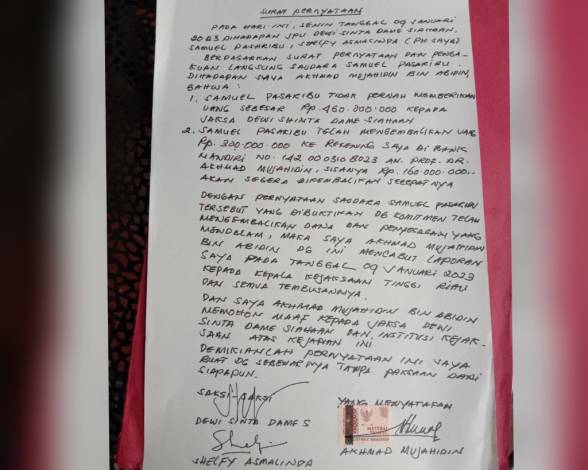 SURAT PERNYATAAN
PADA HARI INI, SENIN TANGGAL 09 JANUARI
2023 DIHADAPAN JPU DEWI SINTA DAME SIAHAAN,
SAMUEL PASARIBU, SHELFY ASMALINDA (PH SAYA)
BERDASARKAN SURAT PERNYATAAN DAN PENGA-
KUAN LANGSUNG SAUDARA SAMUEL PASARIBU.
DIHADAPAN SAYA AKHMAD MUJAHIDIN BIN ABIDIN,
BAHWA :
1. SAMUEL PASARIBU TIDAK PERNAH MEMBERIKAN
UANG SEBESAR Rp. 460.000.000 KEPADA
JAKSA DEWI SHINTA DAME SIAHAAN
2. SAMUEL PASARIBU TELAH MENGEMBALIKAN UANG
Rp. 300.000.000 KE REKENING SAYA DI BANK
MANDIRI NO. 142 000310 8023 AN. PROF. DR.
AKHMAD MUJAHIDIN, SISANYA Rp. 160.000.000..
AKAN SEGERA DIKEMBALIKAN SECEPATNYA
DENGAN PERNYATAAN SAUDARA SAMUEL PASARIBU
TERSEBUT YANG DIBUKTIKAN DG KOMITMEN TELAH
MENGEMBALIKAN DANA DAN PENYESALAN YANG
MENDALAM, MAKA SAYA AKHMAD MUJAHIDIN
BIN ABIDIN DG INI MENCABUT LAPORAN
SAYA PADA TANGGAL 09 JANUARI 2023
KEPADA KEPALA KEJAKSAAN TINGGI RIAU
DAN SEMUA TEMBUSANNYA.
DAN SAYA AKHMAD MUJAHIDIN BIN ABIDIN
MEMOHON MAAF KEPADA JAKSA DEWI
SINTA DAME SIAHAAN DAN INSTITUSI KEJAK-
SAAN ATAS KEJADIAN INI
DEMIKIANLAH PERNYATAAN INI SAYA
BUAT DG SEBENARNYA TANPA PAKSAAN DARI
SIAPAPUN.
SAKSI-SAKSI
YANG MENYATAKAN
DEWI SINTA DAME S
AKHMAD MUJAHIDIN
SHELFY ASMALINDA